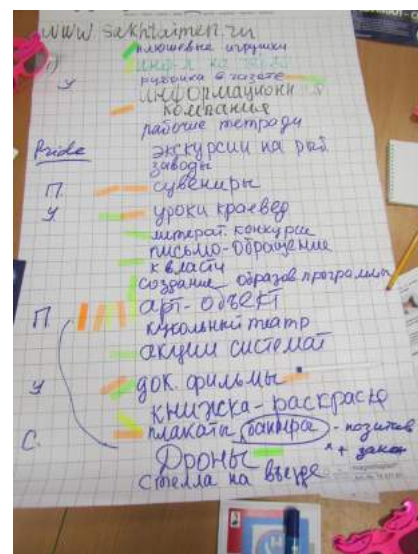 www sakhtaimen.ru
плюшевые игрушки
инф-я на
У рубрика в газете
информационная
компания
рабочие тетради
Pride экскурсии на рыб
заводы
П. сувениры
У. уроки краевед
литерат. конкурс
письмо-обращение
к власти
создание образов программ
П арт-объект
кукольный театр
акции системат
У док. фильмы
книжка-раскраска
С. плакаты баннера - позитив
Дроны + закон
стелла на въезде